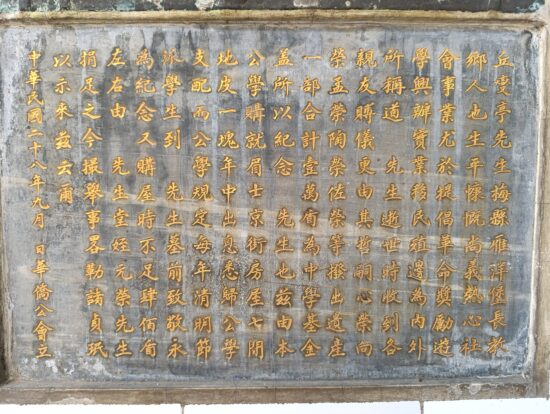 丘燮亭先生梅縣雁洋堡長教
鄉人也生平慷慨尚義熱心社
會事業尤於提倡革命獎勵遊
學興辦實業移民殖邊為內外
所稱道　先生逝世時收到各
親友賻儀更由其哲嗣心榮向
榮孟榮陶榮佐榮等撥出遺產
一部合計壹萬盾為中學基金
蓋所以紀念　先生也茲由本
公學購就眉士京街房屋七間
地皮一塊年中出息悉歸公學
支配而公學規定每年清明節
派學生到　先生墓前致敬永
為紀念又購屋時不足肆佰盾
左右由　先生堂姪元榮先生
捐足之今撮舉事畧勒諸貞珉
以示來茲云爾
中華民國二十八年九月　日華僑公會立